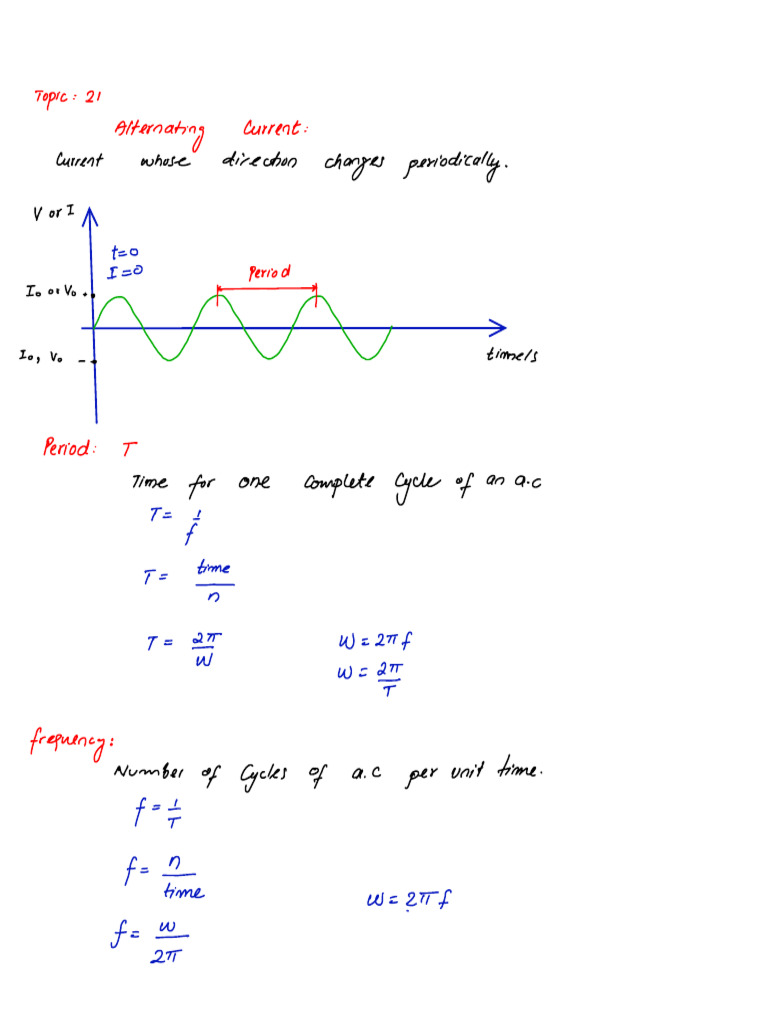 Topic: 21
Alternating Current:
Current whose direction changes periodically.
V or I
t=0
I=0
Period
I₀ or V₀
I₀, V₀
time/s
Period: T
Time for one complete cycle of an a.c
T = 1/f
T = time/n
T = 2π/W W = 2πf
W = 2π/T
frequency:
Number of Cycles of a.c per unit time.
f = 1/T
f = n/time
w = 2πf
f = w/2π